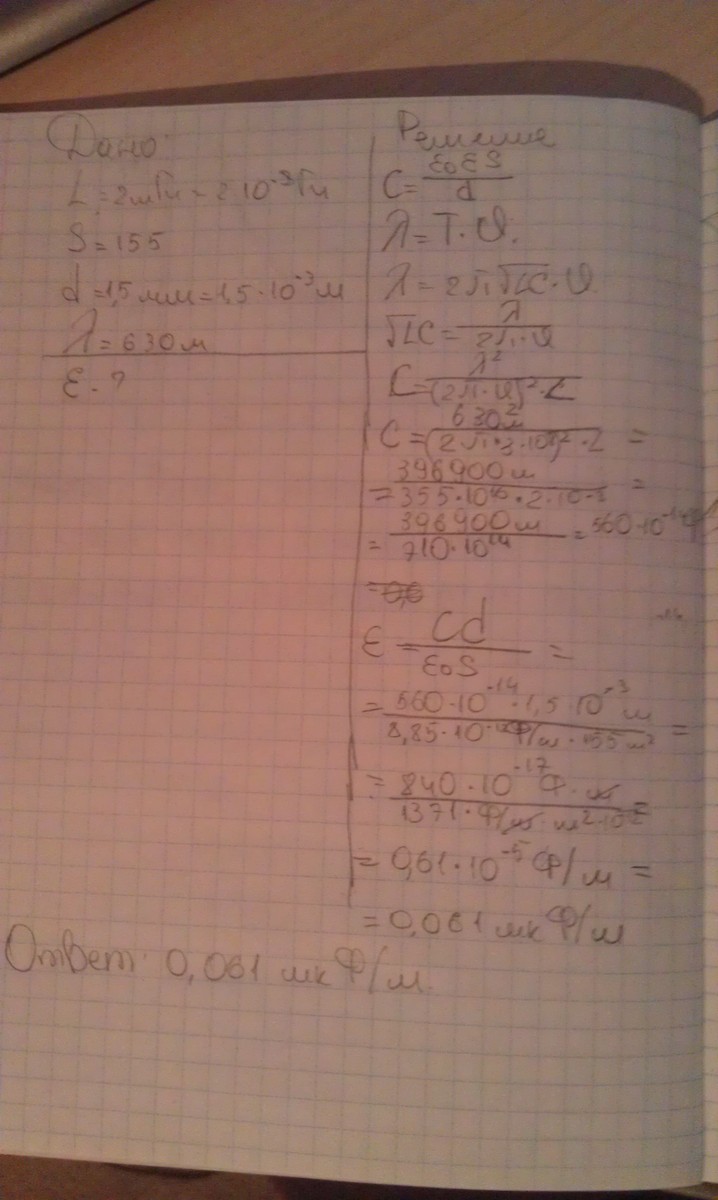 Дано:
L = 2мГн = 2·10⁻³Гн
S = 155
d = 1,5 мм = 1,5·10⁻³ м
λ = 630 м
ε - ?
Решение
C = ε₀εS / d
λ = T·υ.
λ = 2π√LC·υ.
√LC = λ / 2π·υ
C = λ² / (2π·υ)²·L
C = 630²м / (2π·3·10⁸)²·L =
= 396900 м / 355·10¹⁶·2·10⁻³ =
= 396900 м / 710·10¹⁴ = 560·10⁻¹⁴ Ф
ε = Cd / ε₀S =
= 560·10⁻¹⁴·1,5·10⁻³ м / 8,85·10⁻¹² Ф/м · 155 м² =
= 840·10⁻¹⁷ Ф·м / 1371·Ф/м·м²·10⁻¹² =
= 0,61·10⁻⁵ Ф/м =
= 0,061 мкФ/м
Ответ: 0,061 мкФ/м.